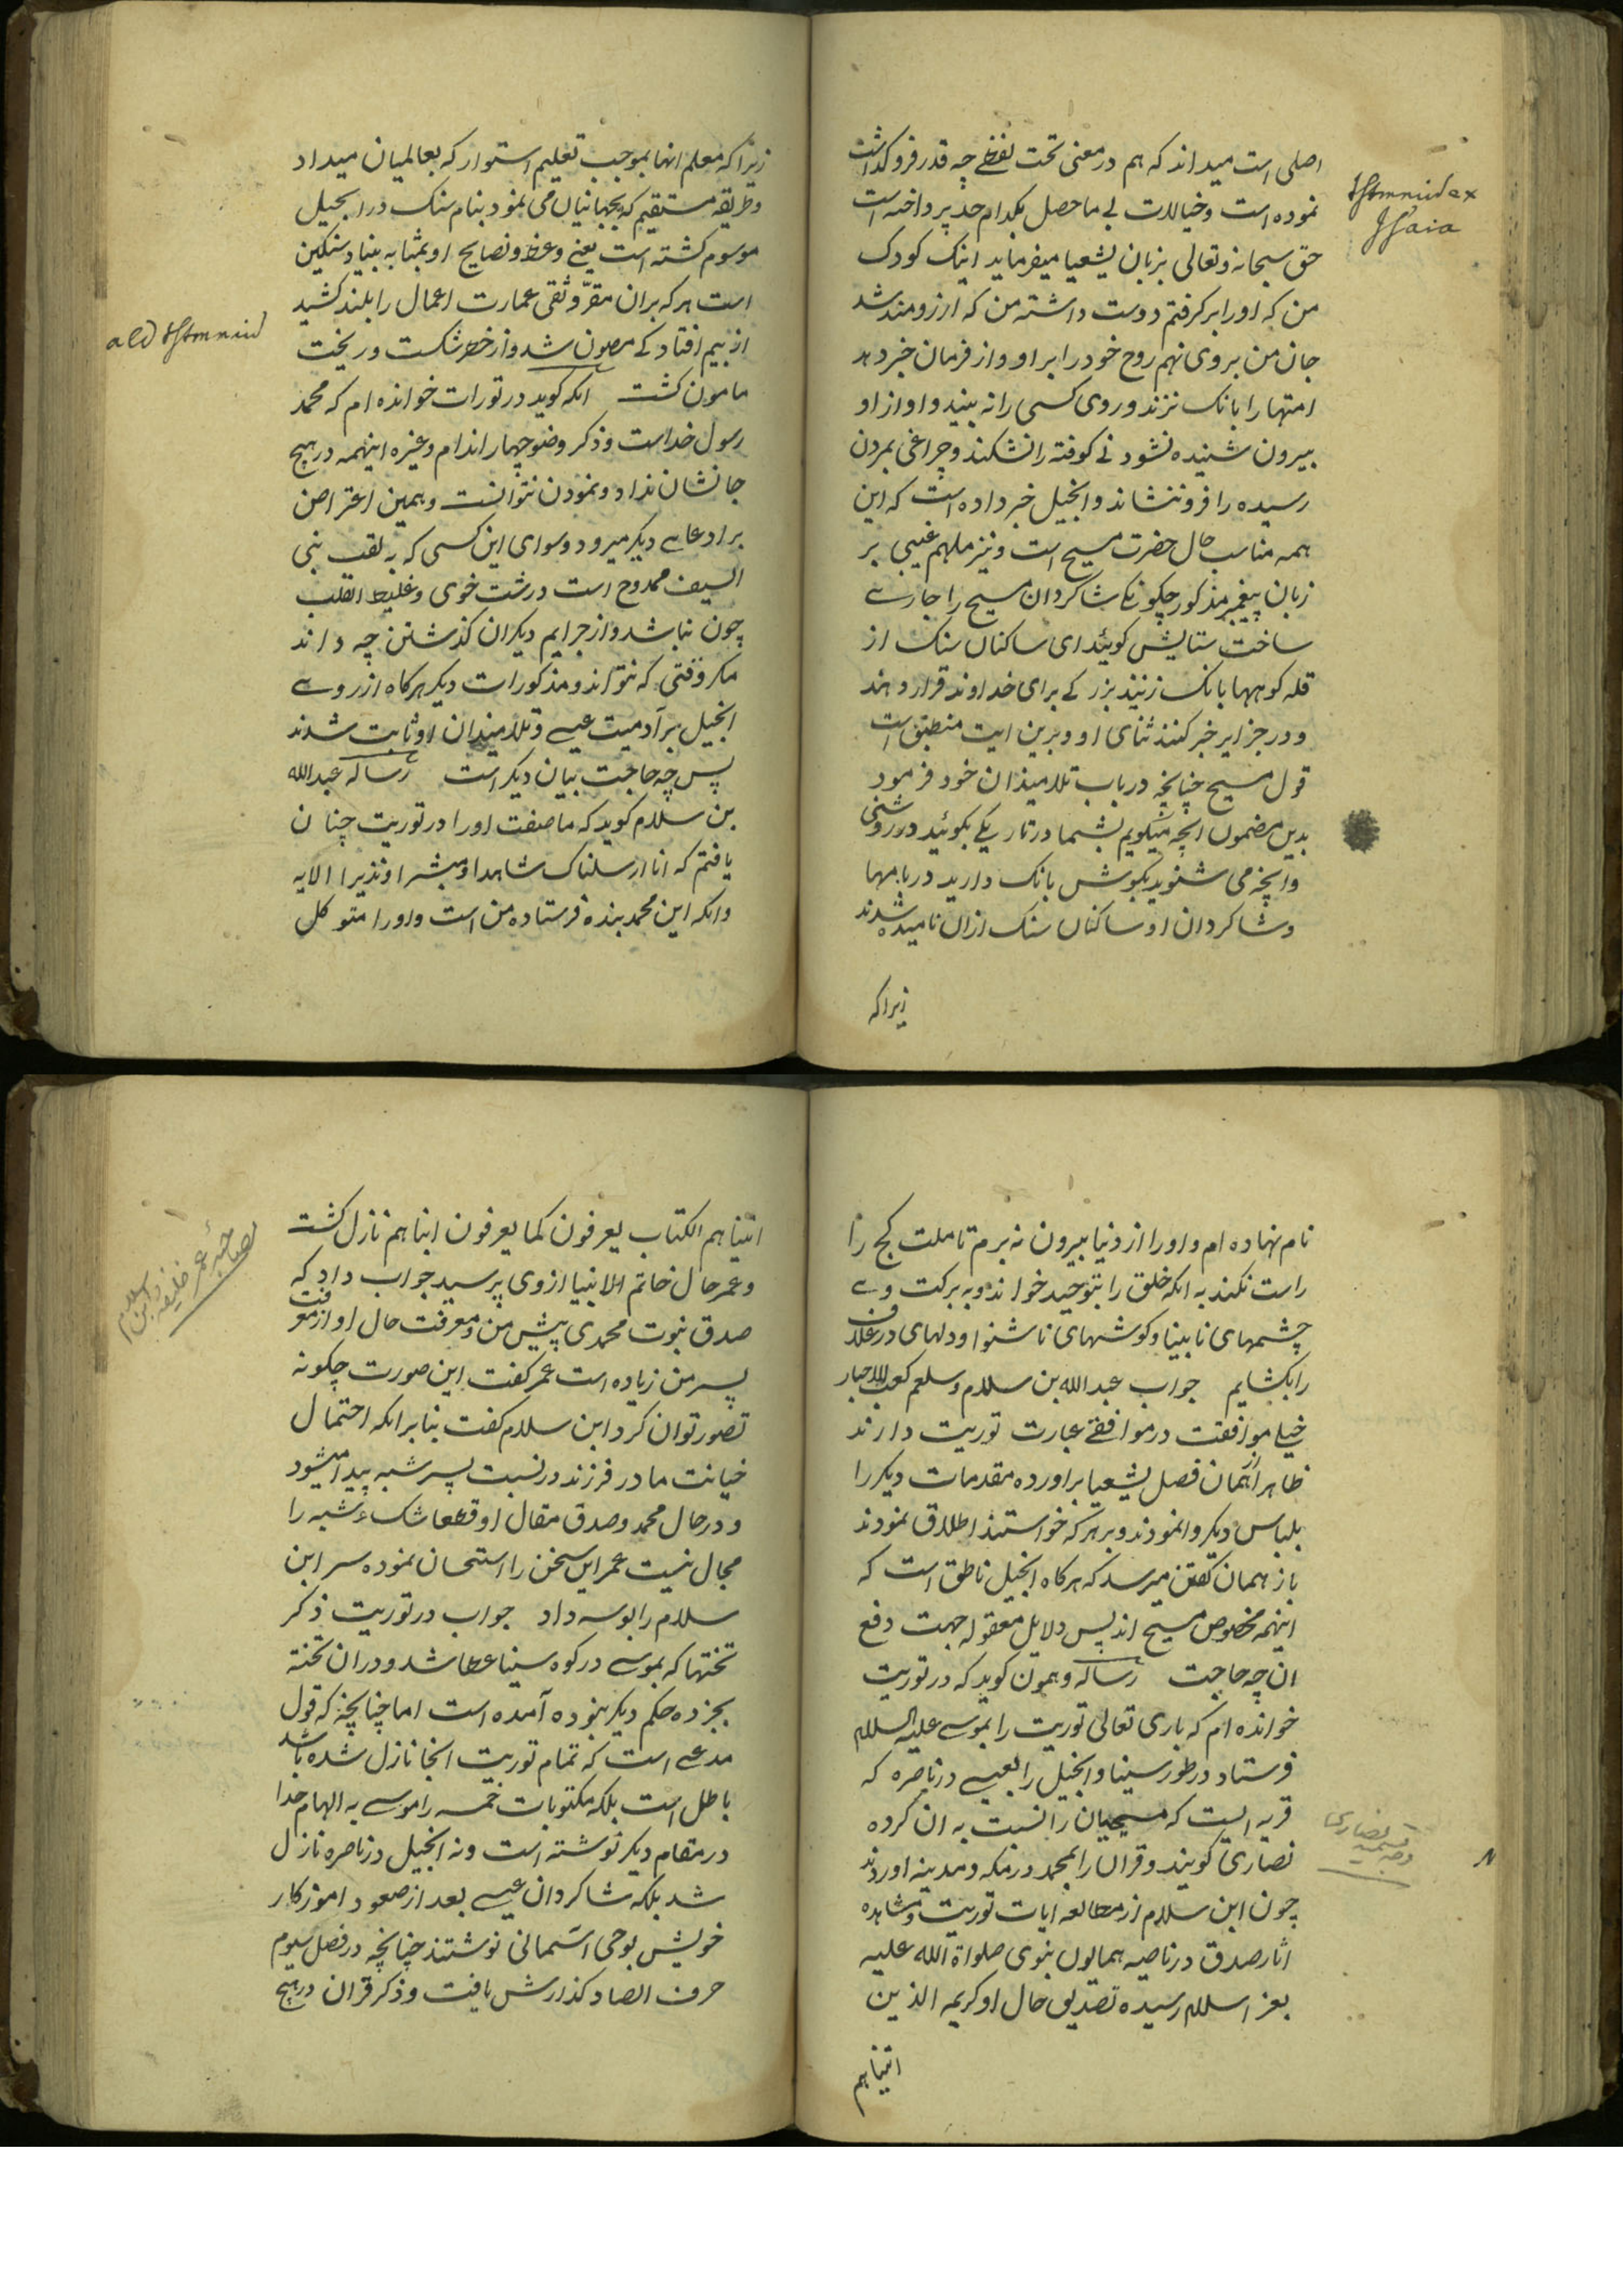 اصلی است میداند که هم در معنی تحت لفظے چه قدر فروگذاشت
نموده است و خیالات بی ماحصل بکدام حد پرداخته است
حق سبحانه و تعالی بزبان یشعیا میفرماید اینک کودک
من که او را برگرفتم دوست داشته من که ارزومند شد
جان من بروی نهم روح خود را بر او و از فرمان خبر دهد
امتها را بانک نزند و روی کسی را نه بیند و اواز او
بیرون شنیده نشود نی کوفته را نشکند و چراغی بمردن
رسیده را فرو ننشاند و انجیل خبر داده است که این
همه مناسب حال حضرت مسیح است و نیز ملهم غیبی بر
زبان پیغمبر مذکور چکونکے شاکردان مسیح را جارے
ساخت ستایش کوئید ای ساکنان سنک از
قله کوهها بانک زنند بزرکے برای خداوند قرار دهند
و در جزایر خبر کنند ثنای او و برین ایت منطبق است
قول مسیح چنانچه در باب تلامیذان خود فرمود
بدین مضمون انچه میکویم بشما در تاریکے بکوئید در روشنی
و انچه می شنوید بکوش بانک دارید در بامها
و شاکردان او ساکنان سنک ازان نامیده شدند
زیراکه
Isaia
زیراکه معلم انها بموجب تعلیم استوار که بعالمیان میداد
و طریقه مستقیم که بجهانیان می نمود بنام سنک در انجیل
موسوم کشته است یعنے وعظ و نصایح او بمثابه بنیاد سنکین
است هر که بران مقرّ وثقی عمارت اعمال را بلند کشید
از بیم افتادکے مصون شد و از خطر شکست و ریخت
مامون کشت انکه کوید در تورات خوانده ام که محمد
رسول خداست و ذکر وضو چهار اندام و غیره اینهمه در هیچ
جا نشان نداد و نمودن نتوانست و همین اعتراض
بر ادعاے دیکر میرود و سوای این کسی که به لقب نبی
السیف ممدوح است درشت خوی و غلیظ القلب
چون نباشد و از جرایم دیکران کذشتن چه داند
مکر وقتی که نتواند و مذکورات دیکر هرکاه از روے
انجیل بر آدمیت عیسے و تلامیذان او ثابت شدند
پس چه حاجت بیان دیکر است رساله عبدالله
بن سلام کوید که ما صفت او را در توریت چنان
یافتم که انا ارسلناک شاهدا و مبشرا و نذیرا الایه
و انکه این محمد بنده فرستاده من است و او را متوکل
نام نهاده ام و او را از دنیا بیرون نه برم تا ملت کج را
راست نکند به انکه خلق را بتوحید خواند و به برکت وے
چشمهای نابینا و کوشهای ناشنوا و دلهای در غلاف
را بکشایم جواب عبدالله بن سلام و سلعم کعب الاحبار
خیلے موافقت در موافقے عبارت توریت دارند
ظاهرا همان فصل یشعیا براورده مقدمات دیکر را
بلباس دیکر وانمودند و بر هرکه خواستند اطلاق نمودند
باز همان کفتن میرسد که هرکاه انجیل ناطق است که
اینهمه مخصوص مسیح اند پس دلایل معقوله جهت دفع
ان چه حاجت رساله و همون کوید که در توریت
خوانده ام که باری تعالی توریت را بموسے علیه السلام
فرستاد در طور سینا و انجیل را بعیسے در ناصره که
قریه الیست که مسیحیان را نسبت به ان کرده
نصاریٰ کویند و قران را بمحمد در مکه و مدینه اوردند
چون ابن سلام از مطالعه ایات توریت و مشاهده
اثار صدق در ناصیه همایون نبوی صلواة الله علیه
بعز اسلام رسیده تصدیق حال او کریمه الذین
اتیناهم
وجه تسمیه نصاری
N
اتیناهم الکتاب یعرفون کما یعرفون ابناهم نازل کشت
و عمر حال خاتم الانبیا از وی پرسید جواب داد که
صدق نبوت محمدی پیش من و معرفت حال او از معرفت
پسر من زیاده است عمر کفت این صورت چکونه
تصور توان کرد ابن سلام کفت بنابر انکه احتمال
خیانت مادر فرزند در نسبت پسر شبه پیدا میشود
و در حال محمد و صدق مقال او قطعا شک و شبه را
مجال نیست عمر این سخن را استحسان نموده سر ابن
سلام را بوسه داد جواب در توریت ذکر
تختها که بموسے در کوه سینا عطا شد و دران تخته
بجز ده حکم دیکر نبوده آمده است اما چنانچه که قول
مدعے است که تمام توریت انجا نازل شده باشد
باطل است بلکه مکتوبات خمسه را موسے به الهام خدا
در مقام دیکر نوشته است و نه انجیل در ناصره نازل
شد بلکه شاکردان عیسے بعد از صعود اموزکار
خویش بوحی اسّمانی نوشتند چنانچه در فصل سیوم
حرف الصاد کذارش یافت و ذکر قران در هیچ
عمر خلیفه و ابن سلام